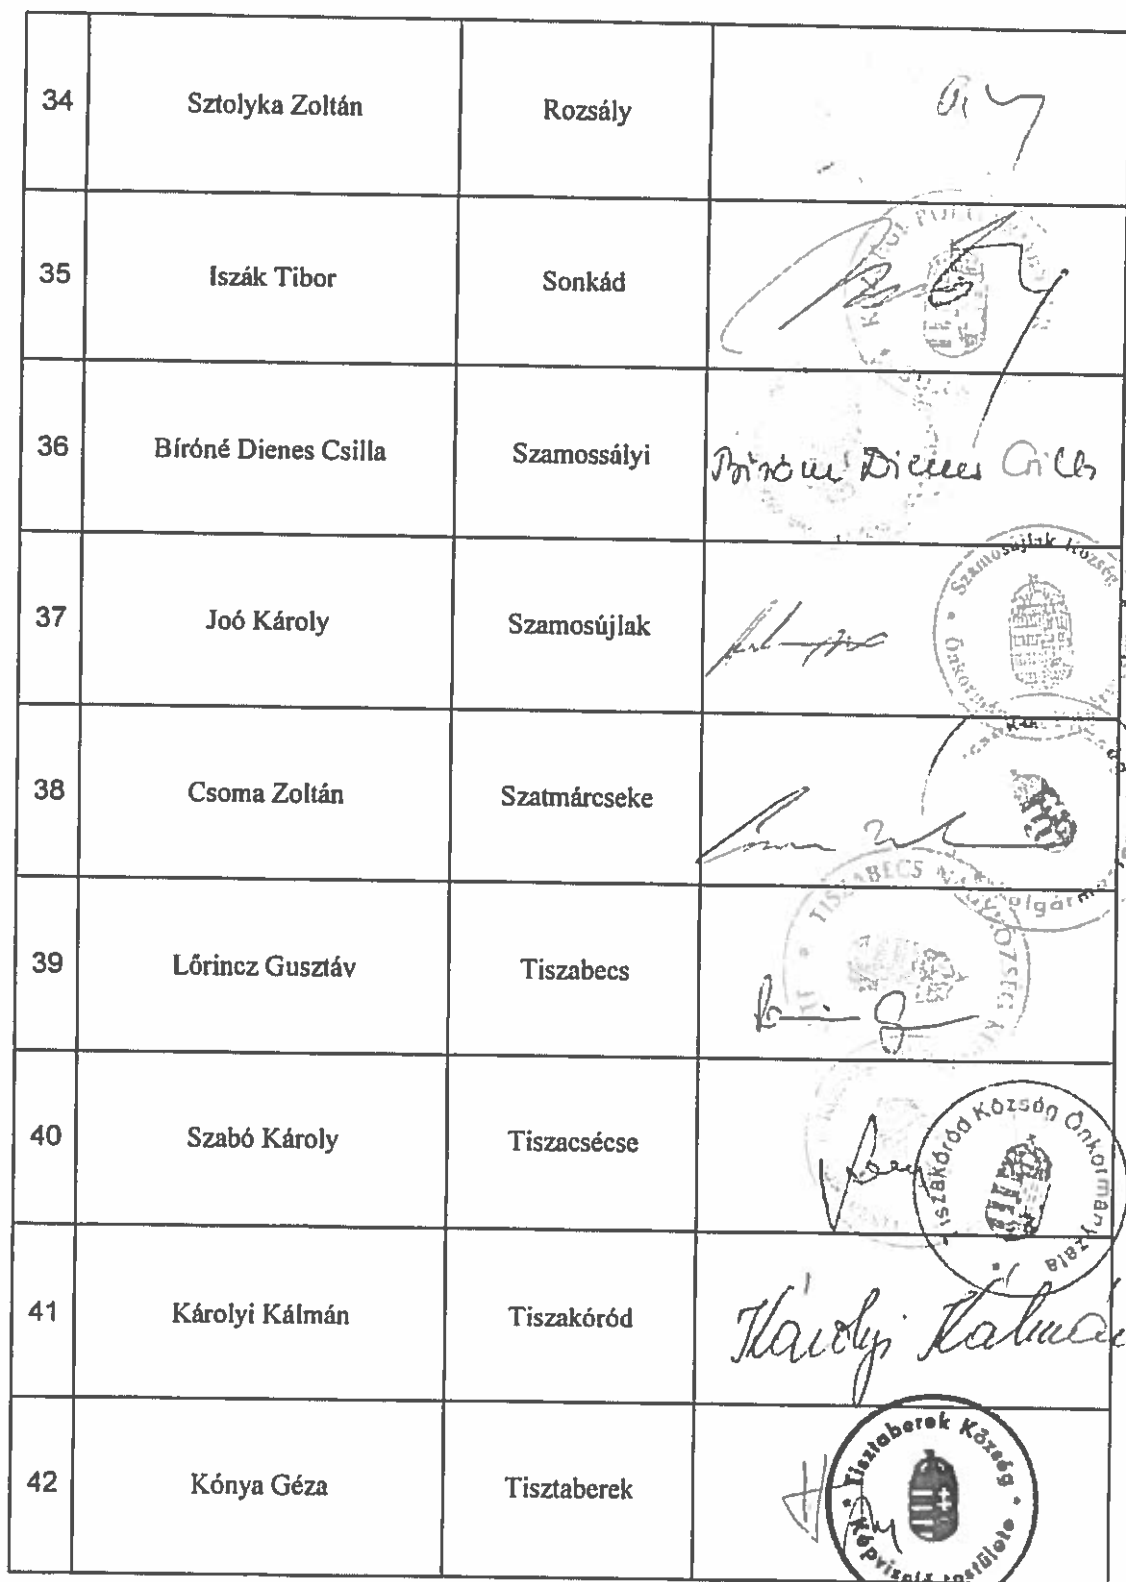 34 Sztolyka Zoltán Rozsály
35 Iszák Tibor Sonkád
36 Bíróné Dienes Csilla Szamossályi Bíróné Dienes Csilla
37 Joó Károly Szamosújlak
Szamosújlak Község
38 Csoma Zoltán Szatmárcseke
39 Lőrincz Gusztáv Tiszabecs
TISZABECS NAGYKÖZSÉG
40 Szabó Károly Tiszacsécse
Tiszakóród Község Önkormányzata
41 Károlyi Kálmán Tiszakóród Károlyi Kálmán
42 Kónya Géza Tisztaberek
Tisztaberek Község Képviselő testülete